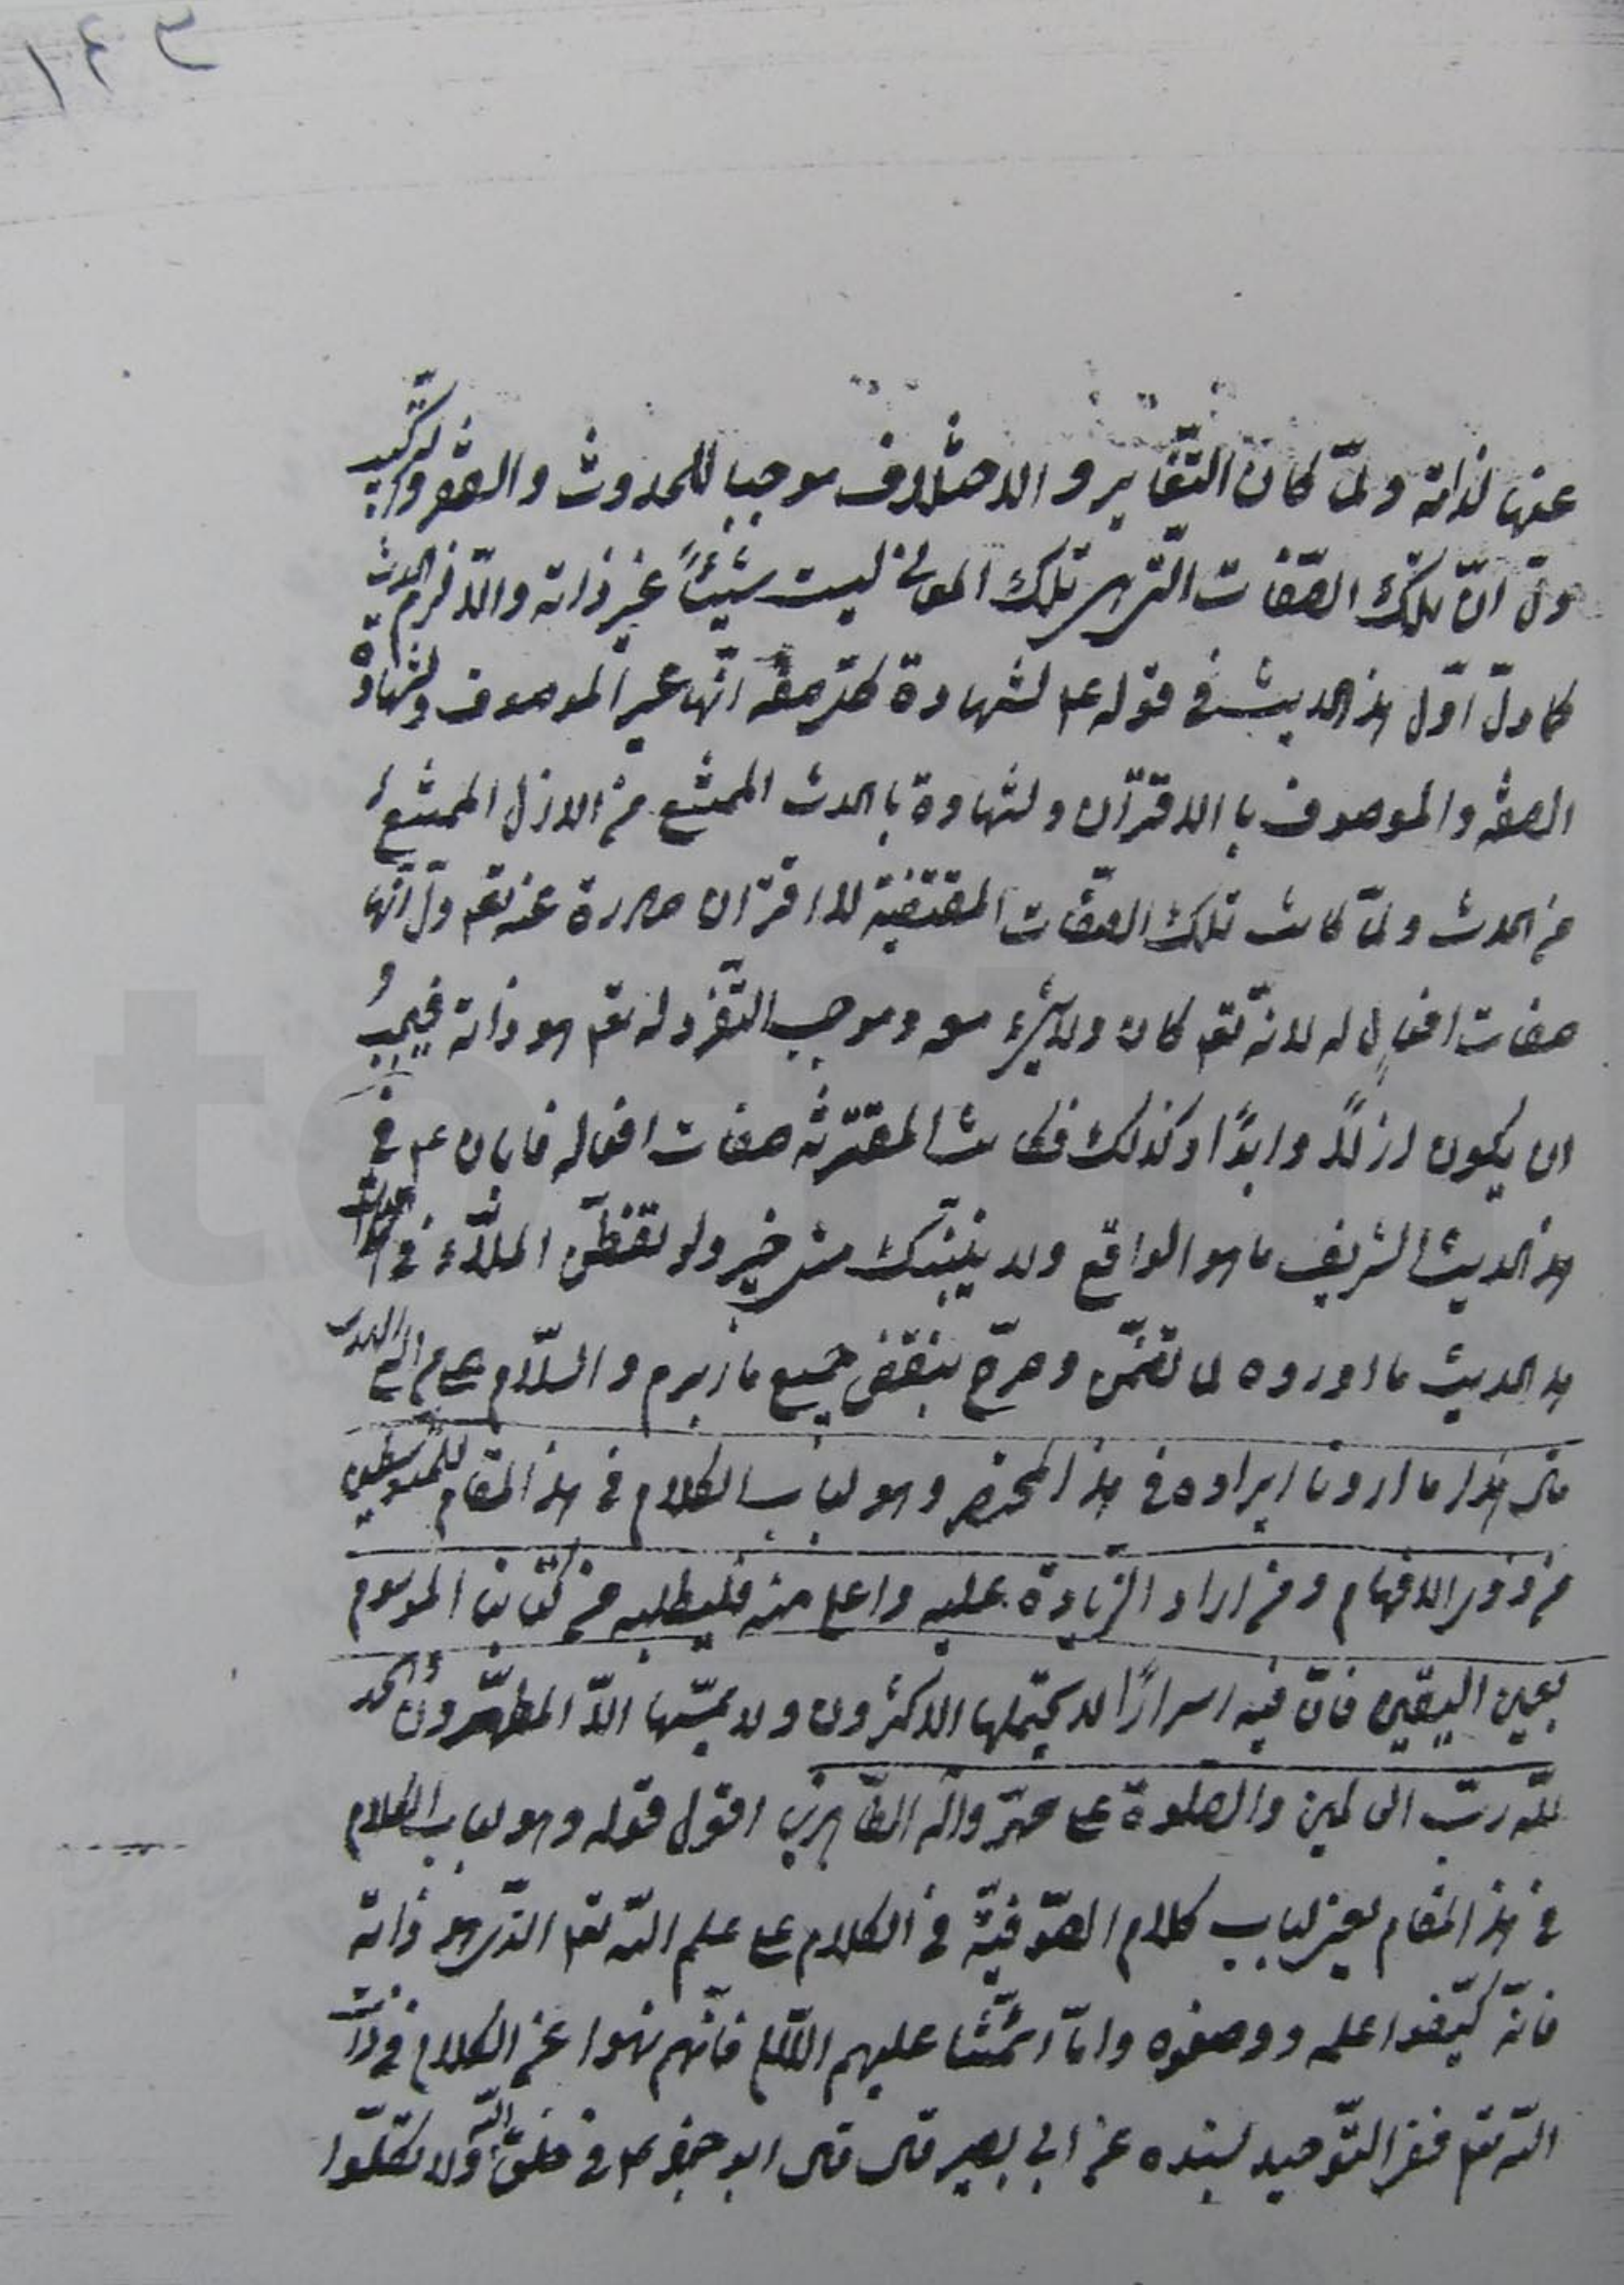 ١٤٣
عنها لذاته ولمّا كان التّغاير والاختلاف موجبا للحدوث والصّفة والتركيب
دلّ انّ تلك الصّفات التى هى تلك المعانى ليست شيئاً غير ذاته والّا لزم الحدث
كما دلّ اوّل هذا الحديث فى قوله ع لشهادة كلّ صفة انّها غير الموصوف وشهادة
الصفة والموصوف بالاقتران وشهادة بالحدث الممتنع من الازل الممتنع
من الحدث ولمّا كانت تلك الصّفات المقتضية للاقتران صادرة عنه تع دلّ انّها
صفات افعال له لانّه تع كان ولا شىء معه وموجب التّفرّد له تع هو ذاته فيجب
ان يكون ازلاً وابدًا وكذلك فكانت المقترنة صفات افعاله فابان ع فى
هذا الحديث الشريف ما هو الواقع ولا ينبّئك مثل خبير ولو تفطّن الملّاء فى هذا
هذا الحديث ما اورده لما تضمّن وصرّح بنقض جميع ما ابرم والسّلام على من اتبع الهدى
قال هذا ما اردنا ايراده فى هذا المختصر وهو لباب الكلام فى هذا المقام للمتوسّطين
من ذوى الافهام ومن اراد الزّيادة عليه واعلى منه فليطلبه من كتابنا الموسوم
بعين اليقين فانّ فيه اسرارًا لا يحتملها الاكثرون ولا يمسّها الّا المطهّرون والحمد
للّه ربّ العالمين والصّلوة على محمّد واله الطّاهرين اقول قوله وهو لباب الكلام
فى هذا المقام يعنى لباب كلام الصّوفيّة فى الكلام على علم اللّه تع الّذى هو ذاته
فانّه كيّفوا علمه ووصفوه وامّا ائمّتنا عليهم السّلام فانّهم نهوا عن الكلام فى ذات
اللّه تع ففى التّوحيد بسنده عن ابى بصير قال قال ابو جعفر ع فى خلق اللّه ولا تكلّموا